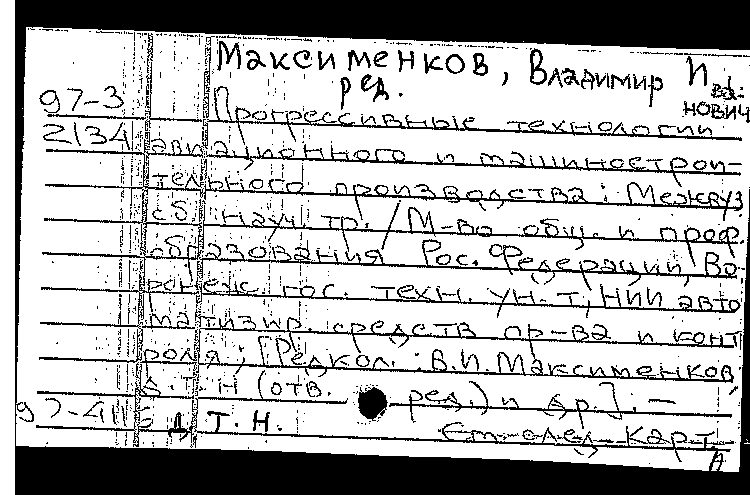 Максименков, Владимир Ива-
ред. нович
97-3 Прогрессивные технологии
2134 авиационного и машинострои-
тельного производства: Межвуз.
сб. науч. тр. / М-во общ. и проф.
образования Рос. Федерации, Во-
ронеж. гос. техн. ун-т, НИИ авто
матизир. средств пр-ва и конт
роля; [Редкол.: В.И. Максименков,
д.т.н (отв. ред.) и др.]. —
97-4116 д.т.н. См. след. карт.
А